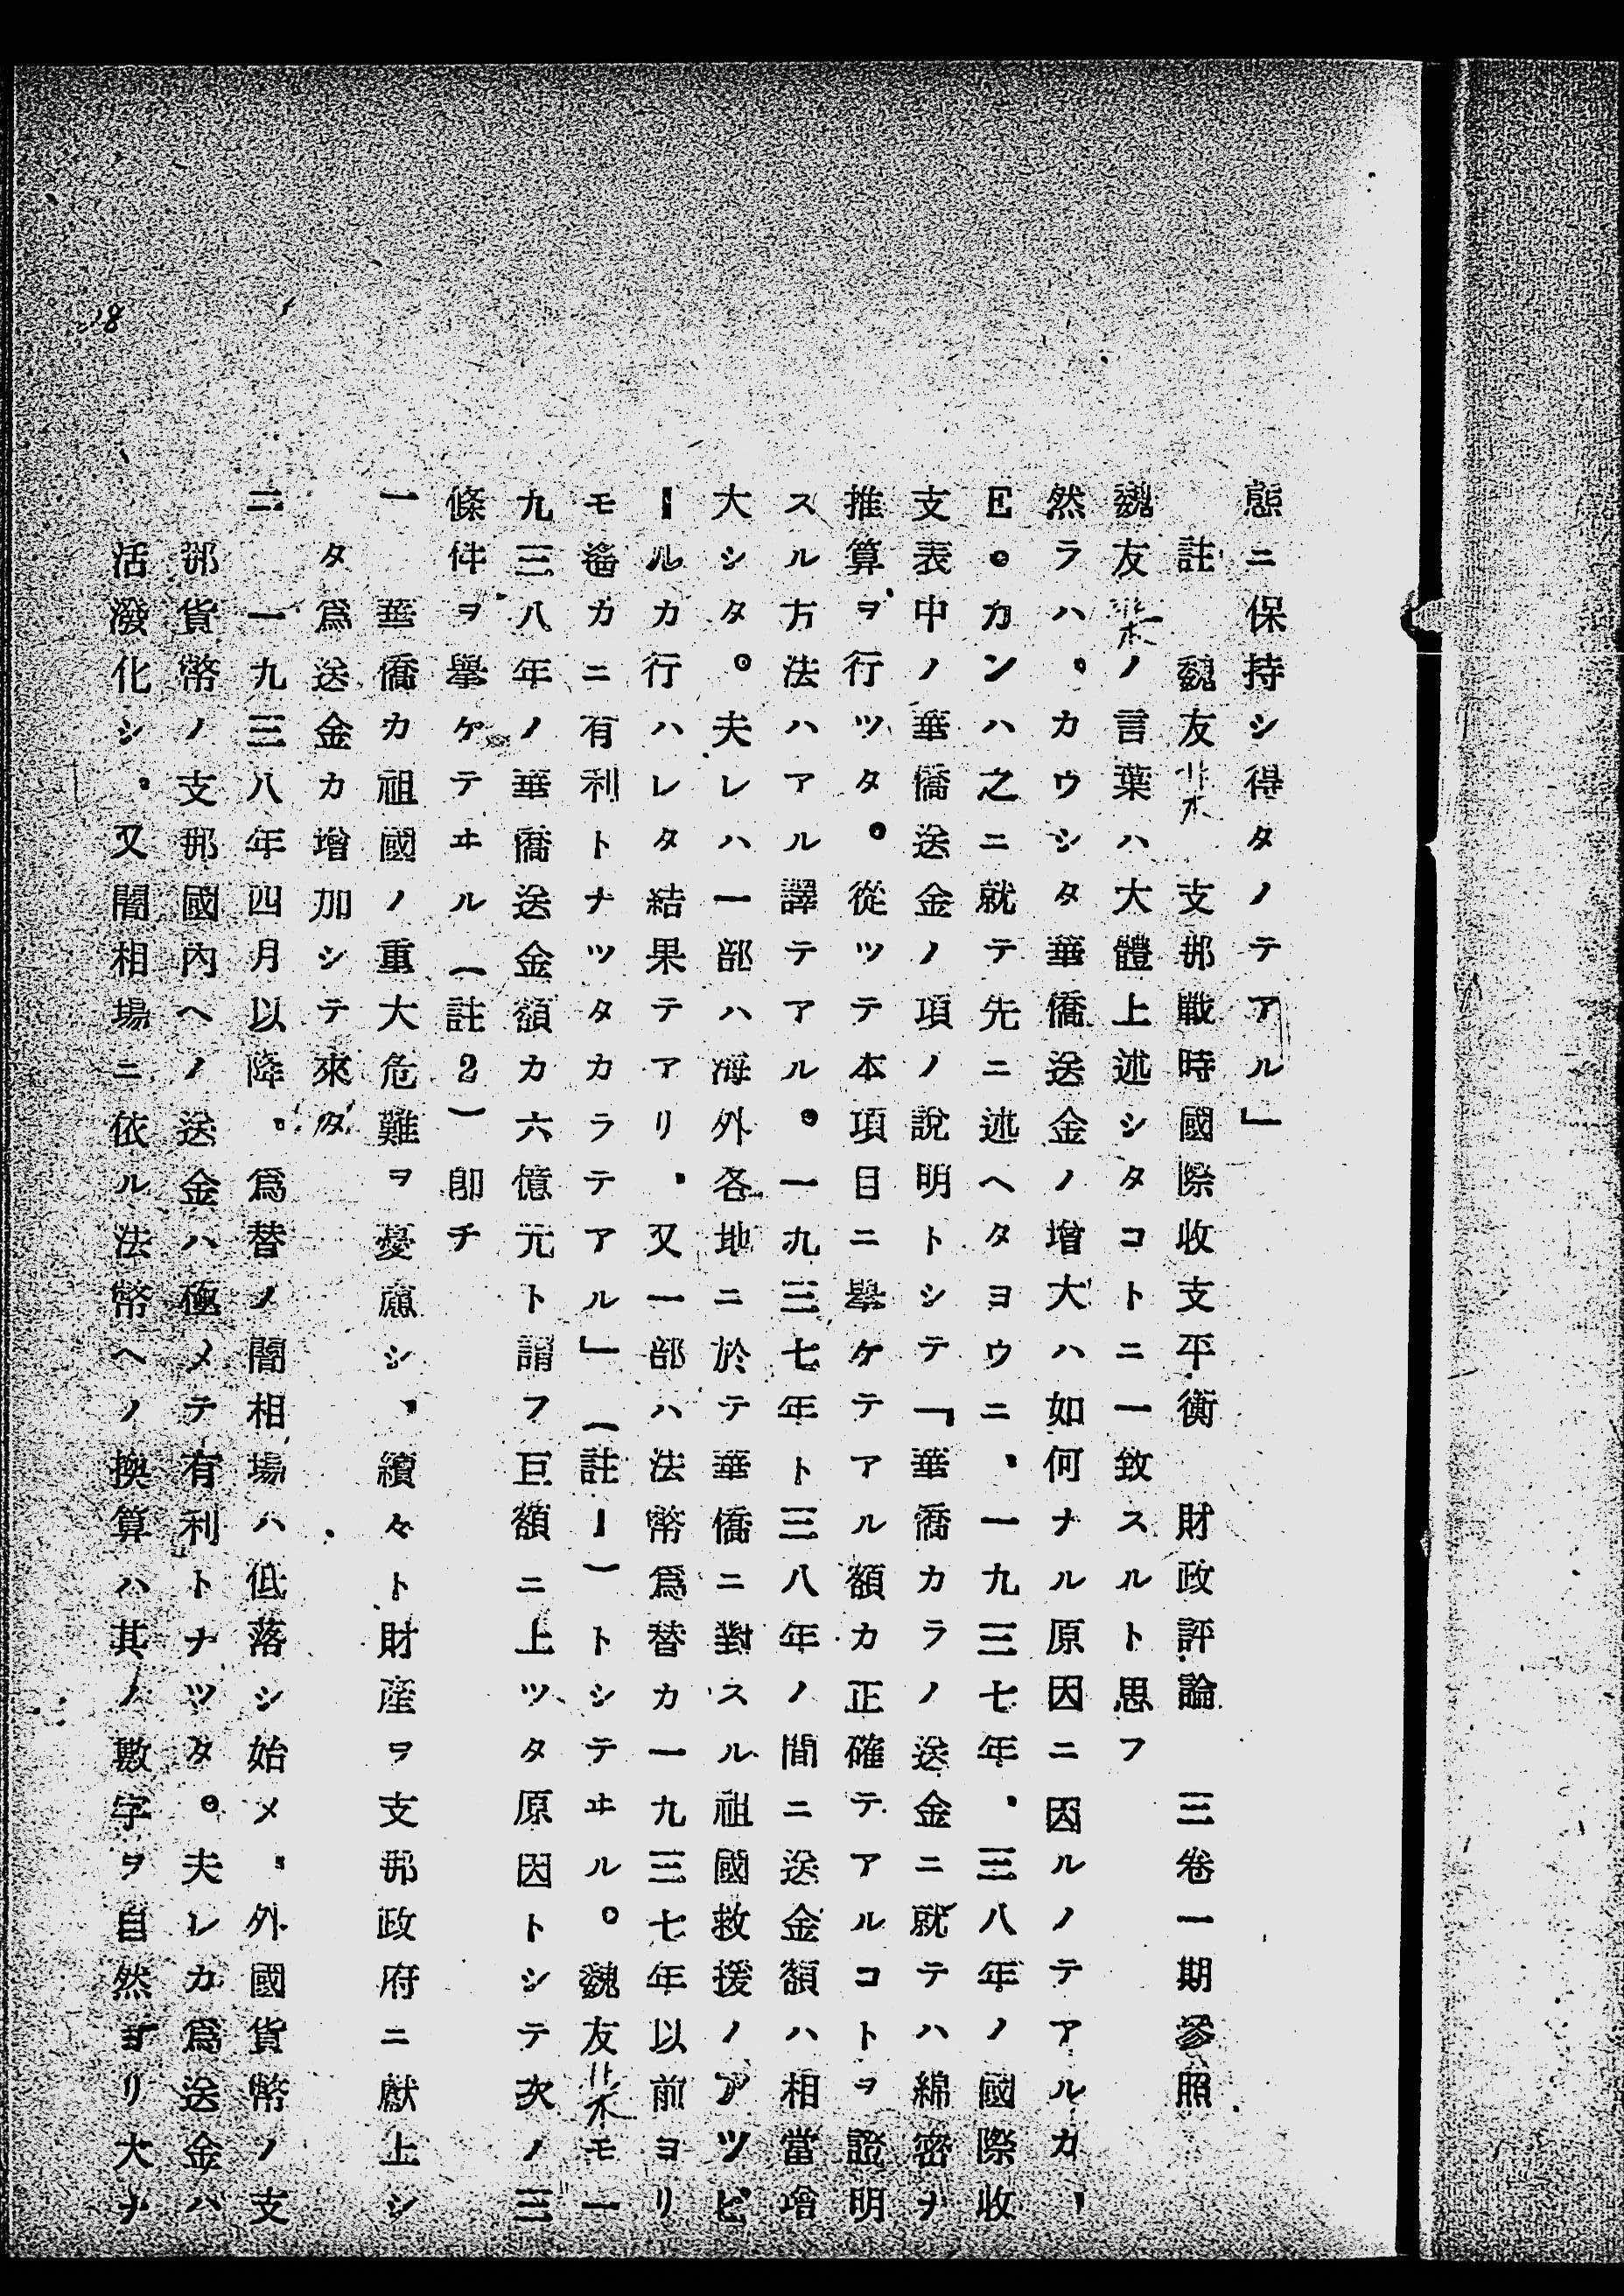 態ニ保持シ得タノテアル」
註 魏友棐 支那戰時國際收支平衡 財政評論 三卷一期參照
魏友棐ノ言葉ハ大體上述シタコトニ一致スルト思フ
然ラハ、カウシタ華僑送金ノ增大ハ如何ナル原因ニ因ルノテアルカ、
E。カンハ之ニ就テ先ニ述ヘタヨウニ、一九三七年、三八年ノ國際收
支表中ノ華僑送金ノ項ノ說明トシテ「華僑カラノ送金ニ就テハ綿密ナ
推算ヲ行ツタ。從ツテ本項目ニ擧ケテアル額カ正確テアルコトヲ證明
スル方法ハアル譯テアル。一九三七年ト三八年ノ間ニ送金額ハ相當增
大シタ。夫レハ一部ハ海外各地ニ於テ華僑ニ對スル祖國救援ノアツピ
ールカ行ハレタ結果テアリ、又一部ハ法幣爲替カ一九三七年以前ヨリ
モ遙カニ有利トナツタカラテアル」(註1)トシテヰル。魏友棐モ一
九三八年ノ華僑送金額カ六億元ト謂フ巨額ニ上ツタ原因トシテ次ノ三
條件ヲ擧ケテヰル(註2)卽チ
一 華僑カ祖國ノ重大危難ヲ憂慮シ、續々ト財產ヲ支那政府ニ獻上シ
タ爲送金カ增加シテ來タ
二 一九三八年四月以降、爲替ノ闇相場ハ低落シ始メ、外國貨幣ノ支
那貨幣ノ支那國內ヘノ送金ハ極メテ有利トナツタ。夫レカ爲送金ハ
活潑化シ、又闇相場ニ依ル法幣ヘノ換算ハ其ノ數字ヲ自然ヨリ大ナ
18